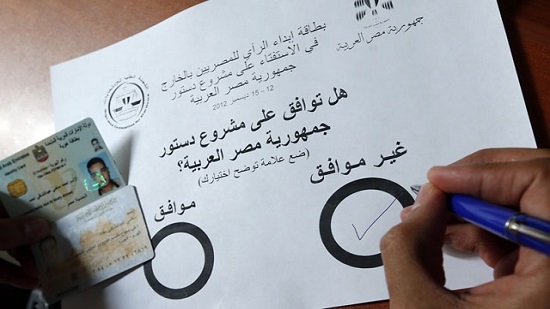 جمهورية مصر العربية
بطاقة إبداء الرأي للمصريين بالخارج
في الاستفتاء على مشروع دستور
جمهورية مصر العربية
12 - 15 ديسمبر 2012
هل توافق على مشروع دستور
جمهورية مصر العربية؟
(ضع علامة توضح اختيارك)
غير موافق
موافق